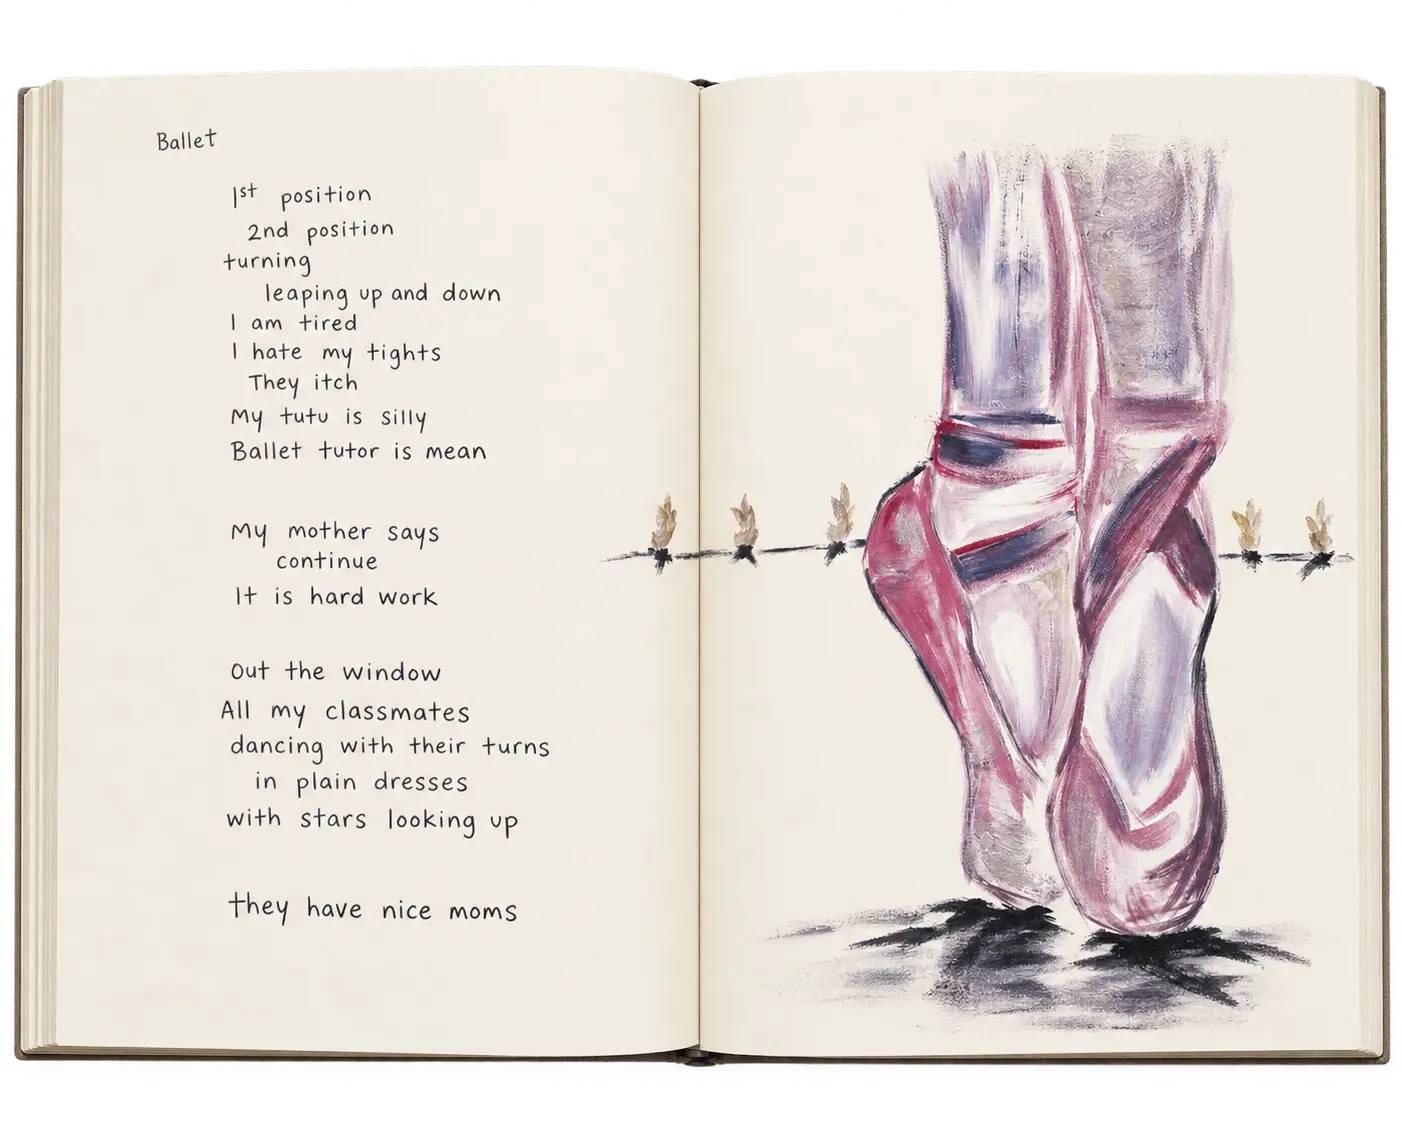 Ballet
1st position
2nd position
turning
leaping up and down
I am tired
I hate my tights
They itch
My tutu is silly
Ballet tutor is mean
My mother says
continue
It is hard work
Out the window
All my classmates
dancing with their turns
in plain dresses
with stars looking up
they have nice moms